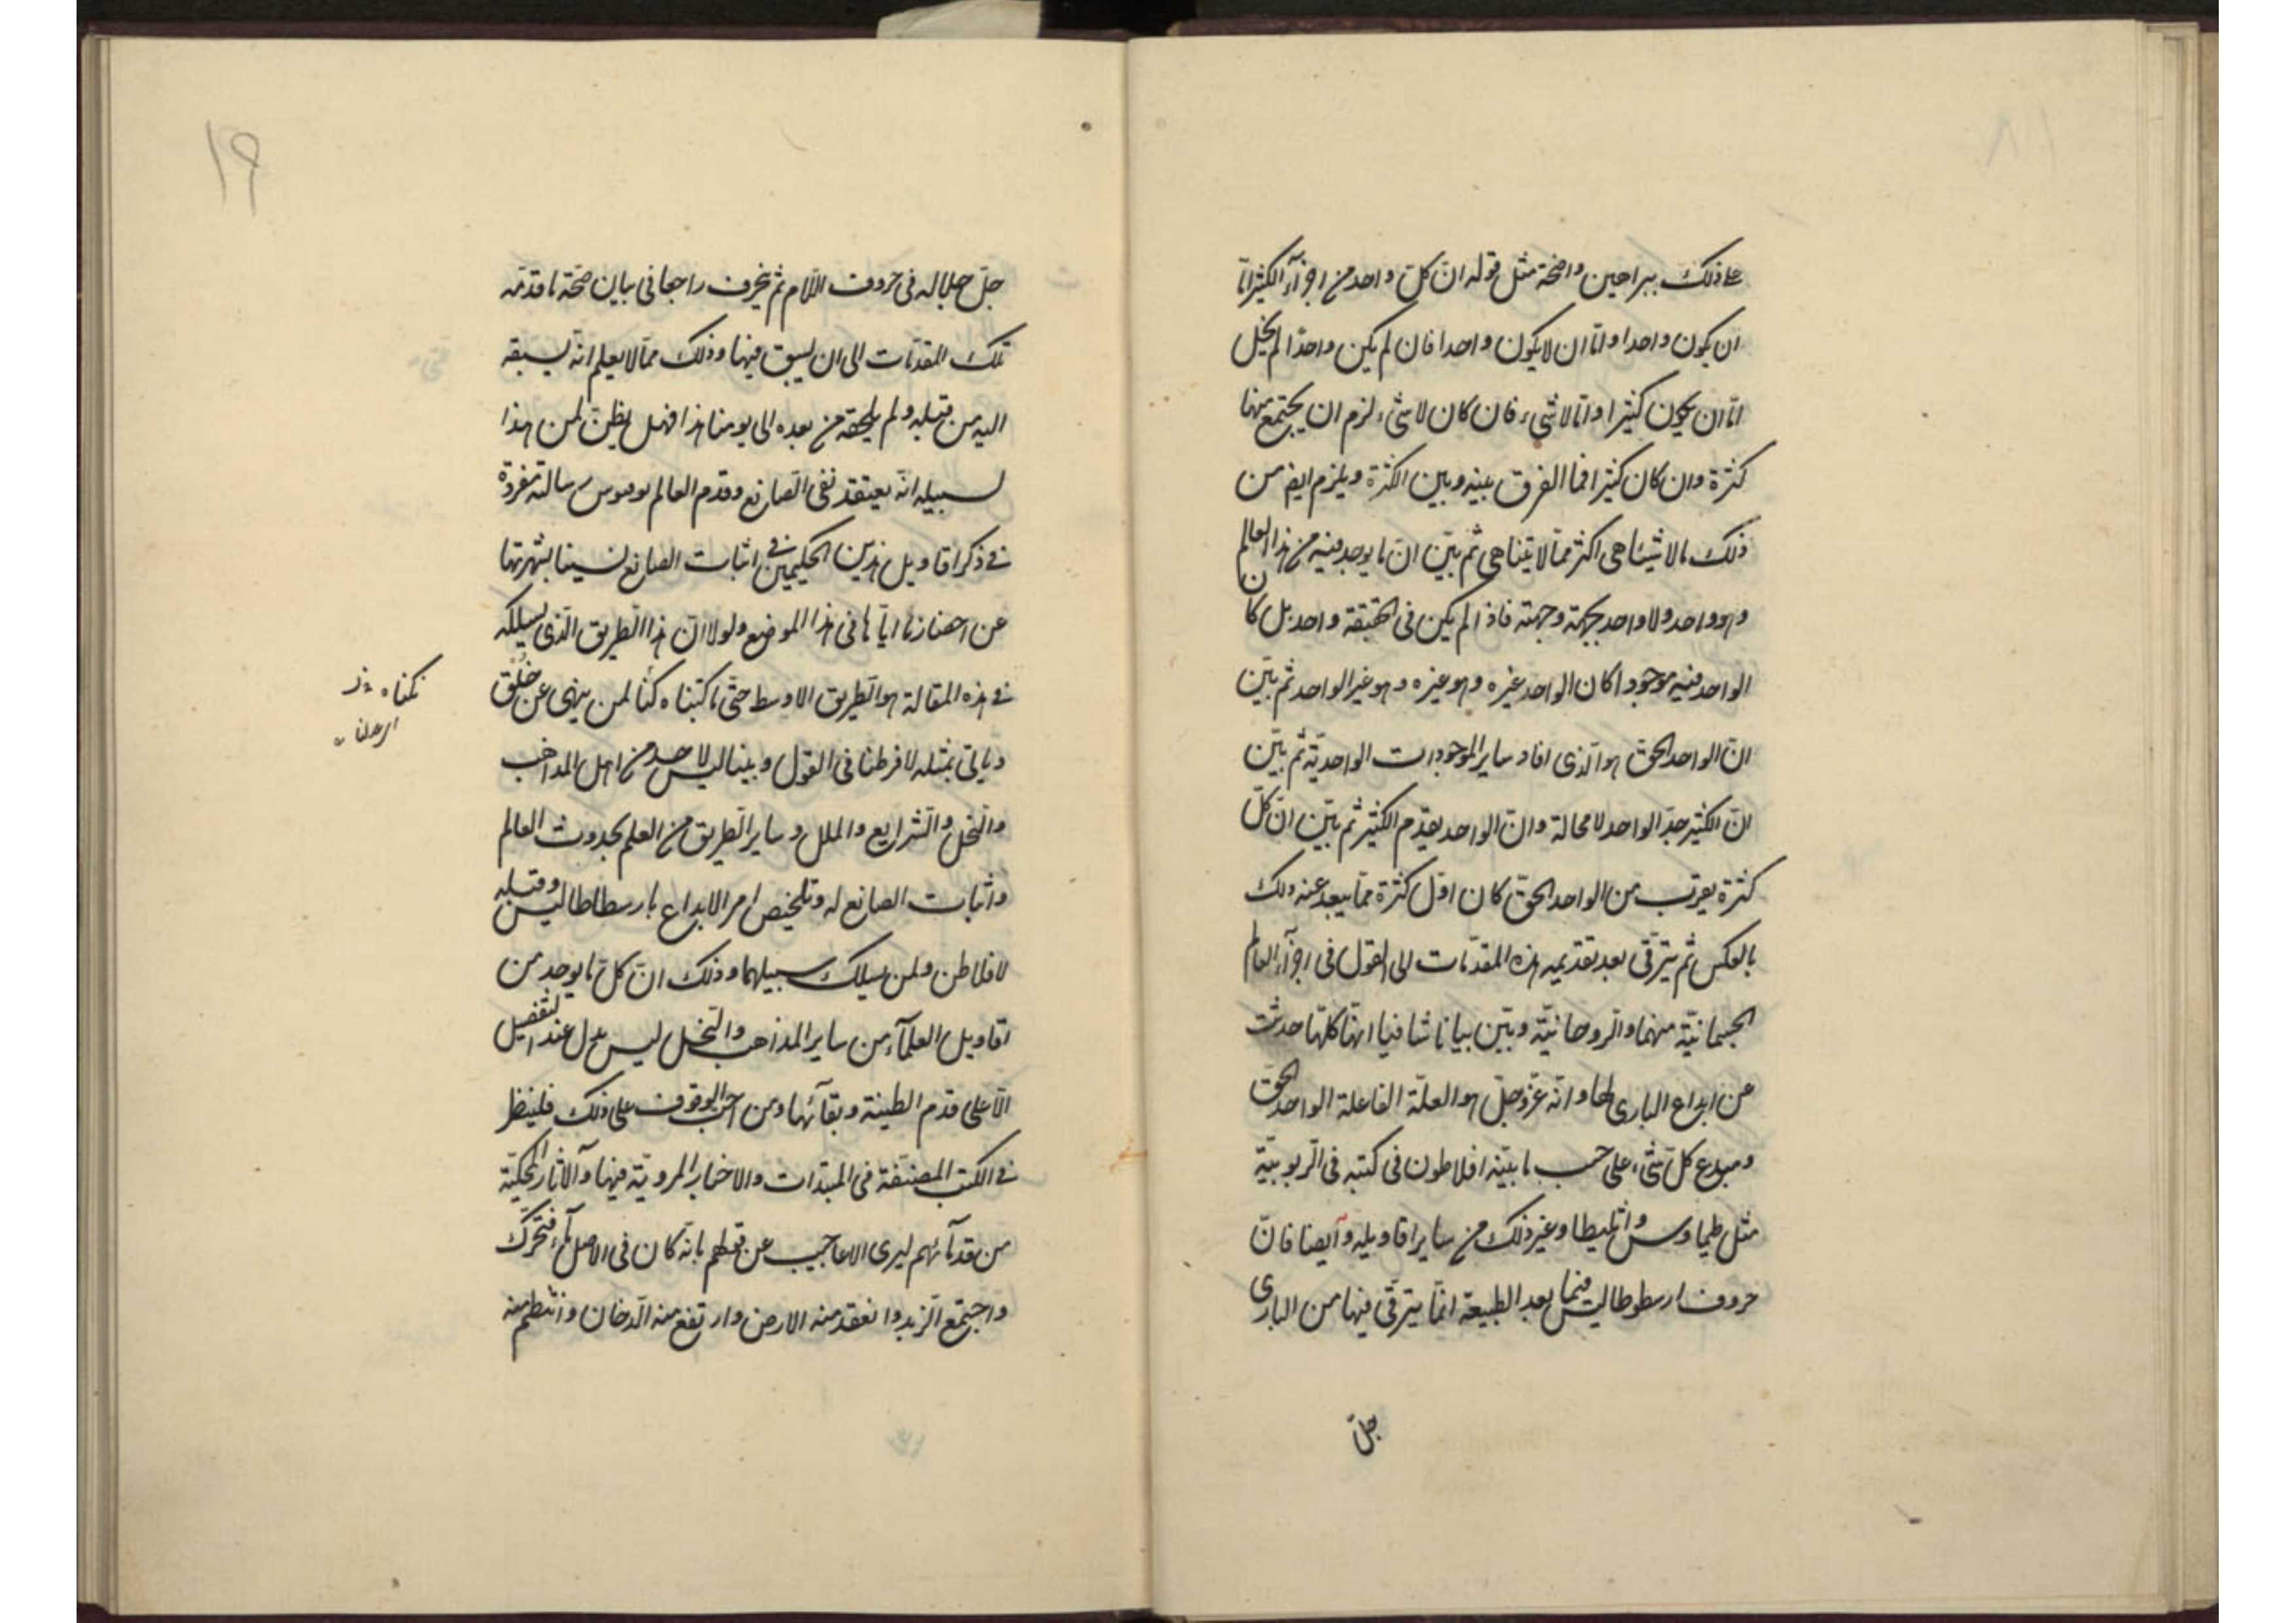 على ذلك ببراهين واضحة مثل قوله ان كلّ واحد من اجزآء الكثير امّا
ان يكون واحدا وامّا ان لا يكون واحدا فان لم يكن واحدا لم يخل
امّا ان يكون كثيرا وامّا لا شىء فان كان لا شىء لزم ان يجتمع منها
كثرة وان كان كثيرا فما الفرق بينه وبين الكثرة ويلزم ايضا من
ذلك ما لا يتناهى اكثر ممّا لا يتناهى ثم بيّن انّ ما يوجد فيه من هذا العالم
وهو واحد ولا واحد بجهة وجهة فاذا لم يكن فى الحقيقة واحد بل كان
الواحد فيه موجودا كان الواحد غيره وهو غيره وهو غير الواحد ثم بيّن
انّ الواحد الحقّ هو الّذى افاد ساير الموجودات الواحديّة ثم بيّن
انّ الكثير بعد الواحد لا محالة وانّ الواحد يقدّم الكثير ثم بيّن انّ كلّ
كثرة يقرب من الواحد الحقّ كان اوّل كثرة ممّا يبعد عنه ذلك
بالعكس ثم يترقّى بعد تقديمه هذه المقدّمات الى القول فى اجزآء العالم
الجسمانيّة منها والروحانيّة وبيّن بيانا شافيا انها كلها حدثت
عن ابداع البارى لها وانّه عزّ وجلّ هو العلّة الفاعلة الواحد الحقّ
ومبدع كلّ شىء على حسب ما بيّنه افلاطون فى كتبه فى الربوبيّة
مثل طيماوس واثليطا وغير ذلك من ساير اقاويله وآيضا فانّ
حروف ارسطوطاليس فيما بعد الطبيعة انّما يترقّى فيها من البارى
جلّ
١٩
جلّ جلاله فى حروف اللّام ثم ينحرف راجعا فى بيان صحّة ما قدّمه
تلك المقدّمات الى ان يسبق فيها وذلك ممّا لا يعلم انّه يسبقه
اليه من قبله ولم يلحقه من بعده الى يومنا هذا فهل يظنّ لمن هذا
سبيله انّه يعتقد نفى الصانع وقدم العالم رسالة مفردة
فى ذكر اقاويل هذين الحكيمين فى اثبات الصانع لشهرتها
عن احضارنا ايّاها فى هذا الموضع ولولا انّ هذا الطريق الّذى يسلكه
فى هذه المقالة هو الطريق الاوسط حتّى ما كتبناه كنّا لمن ينهى عن خلق
وياتى بمثله لافرطنا فى القول وبيّنا ليس لاحد من اهل المذاهب
والنحل والشرايع والملل وساير الطريق من العلم بحدوث العالم
واثبات الصانع له وتلخيص امر الابداع ما رسطاطاليس وقبله
لافلاطن ولمن يسلك سبيلهما وذلك انّ كلّ ما يوجد من
اقاويل العلمآء من ساير المذاهب والنحل ليس يدل عند التفصيل
الّا على قدم الطينة وبقآئها ومن احبّ الوقوف على ذلك فلينظر
فى الكتب المصنّفة فى المبتدات والاخبار المرويّة فيها والآثار المحكيّة
من قدمآئهم ليرى الاعاجيب عن قولهم بانّه كان فى الاصل مآء فتحرّك
واجتمع الزبد وانعقد منه الارض وارتفع منه الدّخان وانتظم منه